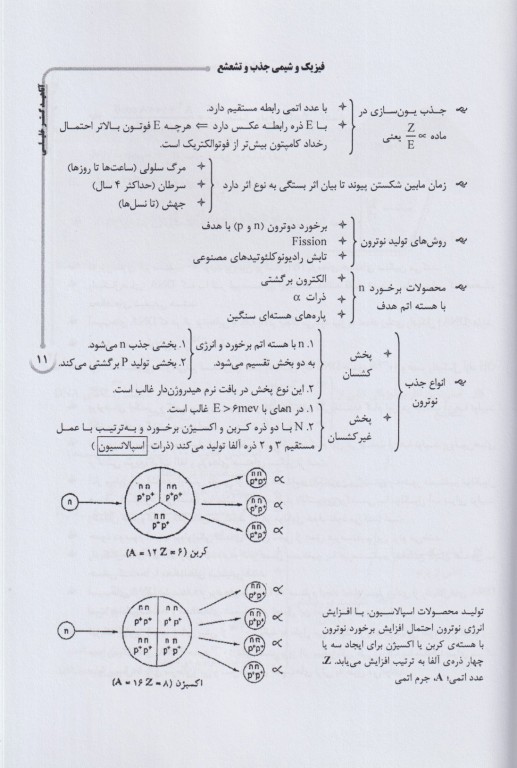 فیزیک و شیمی جذب و تشعشع
۱۱
جذب یون‌سازی در ماده ∝ Z/E یعنی
با عدد اتمی رابطه مستقیم دارد.
با E ذره رابطه عکس دارد ⇐ هرچه E فوتون بالاتر احتمال
رخداد کامپتون بیش‌تر از فوتوالکتریک است.
زمان مابین شکستن پیوند تا بیان اثر بستگی به نوع اثر دارد
مرگ سلولی (ساعت‌ها تا روزها)
سرطان (حداکثر ۴ سال)
جهش (تا نسل‌ها)
روش‌های تولید نوترون
برخورد دوترون (n و p) با هدف
Fission
تابش رادیونوکلئوتیدهای مصنوعی
محصولات برخورد n
با هسته اتم هدف
الکترون برگشتی
ذرات α
پاره‌های هسته‌ای سنگین
انواع جذب
نوترون
پخش
کشسان
۱. n با هسته اتم برخورد و انرژی
به دو بخش تقسیم می‌شود.
۱. بخشی جذب n می‌شود.
۲. بخشی تولید P برگشتی می‌کند.
۲. این نوع پخش در بافت نرم هیدروژن‌دار غالب است.
پخش
غیرکشسان
۱. در nهای با E > ۶mev غالب است.
۲. N با دو ذره کربن و اکسیژن برخورد و به‌ترتیب با عمل
مستقیم ۳ و ۲ ذره آلفا تولید می‌کند (ذرات اسپالانسیون)
n
nn
p⁺p⁺
nn
p⁺p⁺
nn
p⁺p⁺
nn
p⁺p⁺
∝
nn
p⁺p⁺
∝
nn
p⁺p⁺
∝
کربن (A = ۱۲ Z = ۶)
n
nn
p⁺p⁺
nn
p⁺p⁺
nn
p⁺p⁺
nn
p⁺p⁺
nn
p⁺p⁺
∝
nn
p⁺p⁺
∝
nn
p⁺p⁺
∝
nn
p⁺p⁺
∝
اکسیژن (A = ۱۶ Z = ۸)
تولید محصولات اسپالاسیون، با افزایش
انرژی نوترون احتمال افزایش برخورد نوترون
با هسته‌ی کربن یا اکسیژن برای ایجاد سه یا
چهار ذره‌ی آلفا به ترتیب افزایش می‌یابد. Z،
عدد اتمی؛ A، جرم اتمی